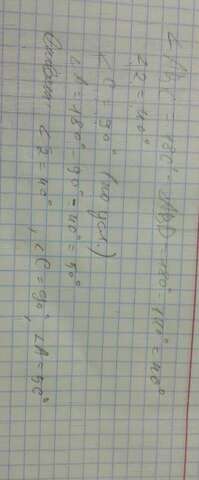 ∠ABC = 180° - ∠ABD = 180° - 140° = 40°
∠B = 40°
∠C = 90° (по усл.)
∠A = 180° - 90° - 40° = 50°
Ответ: ∠B = 40°, ∠C = 90°, ∠A = 50°